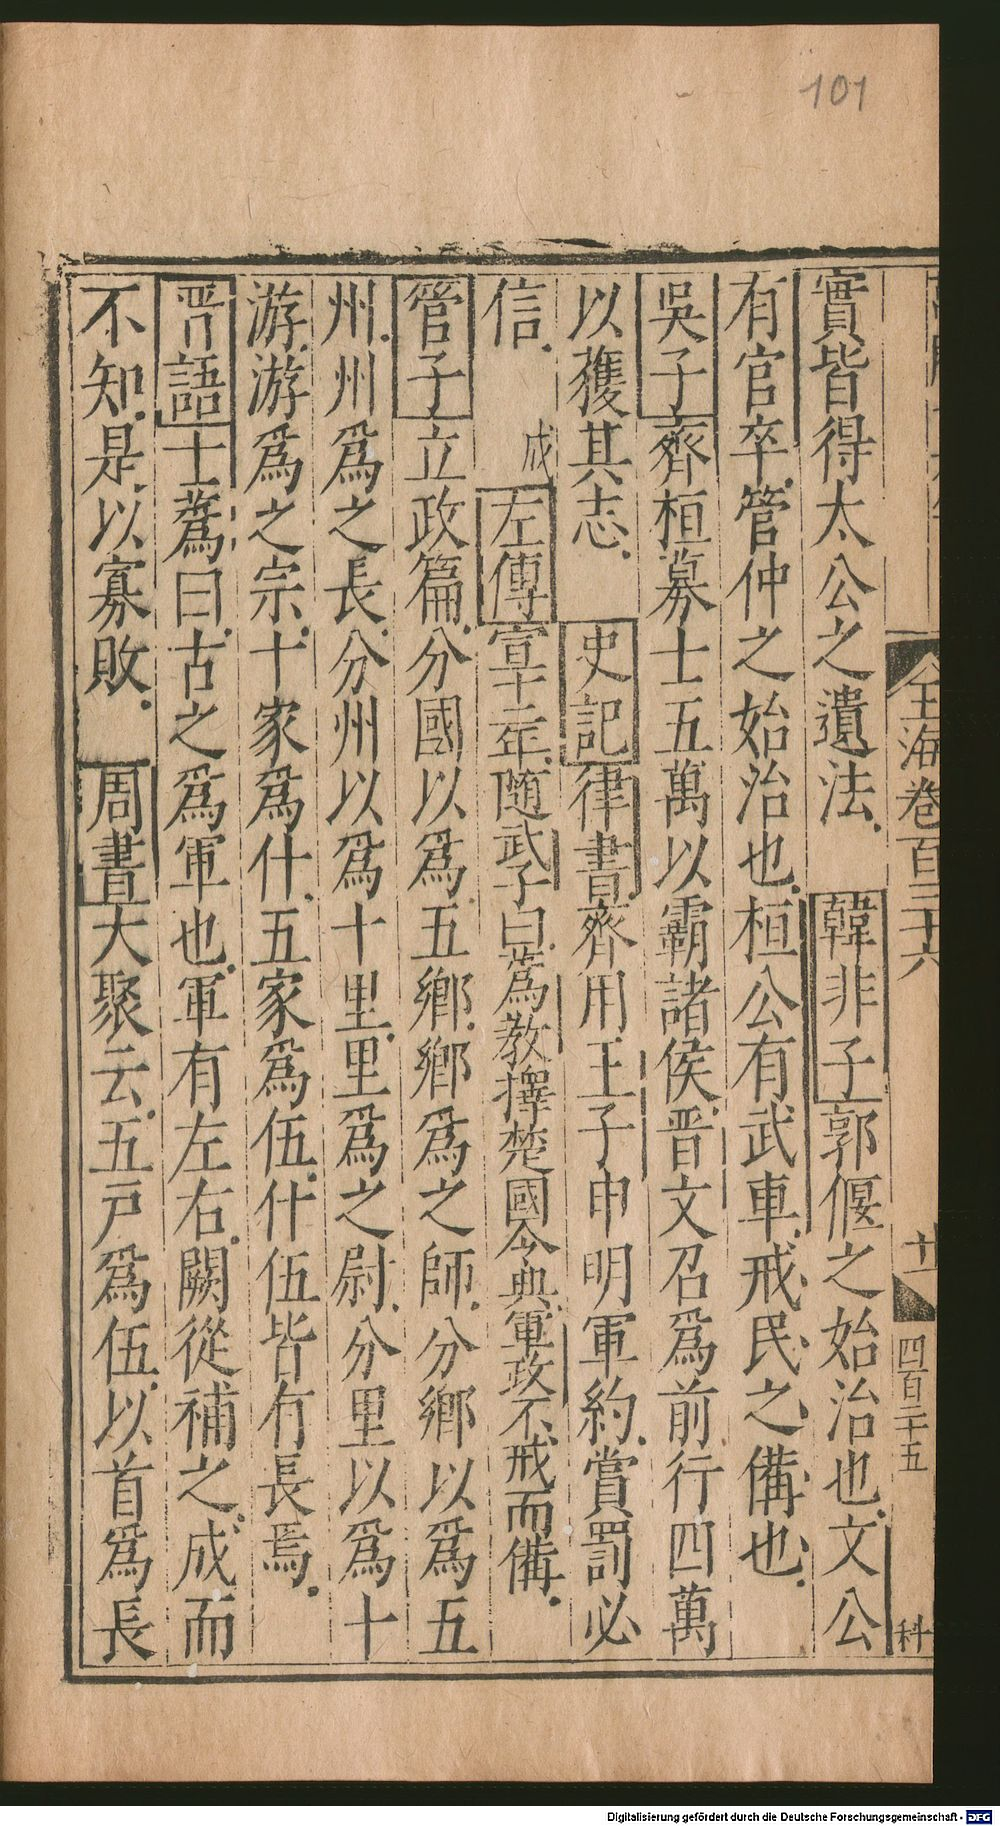 101
玉海卷百三十六
十一
四百二十五
科
實皆得太公之遺法韓非子郭偃之始治也文公
有官卒管仲之始治也桓公有武車戒民之備也
吳子齊桓募士五萬以霸諸侯晉文召爲前行四萬
以獲其志 史記律書齊用王子申明軍約賞罰必
信 成左傳宣十二年隨武子曰蒍敖擇楚國令典軍政不戒而備
管子立政篇分國以爲五鄉鄉爲之師分鄉以爲五
州州爲之長分州以爲十里里爲之尉分里以爲十
游游爲之宗十家爲什五家爲伍什伍皆有長焉
晉語士蔿曰古之爲軍也軍有左右闕從補之成而
不知是以寡敗 周書大聚云五戶爲伍以首爲長
Digitalisierung gefördert durch die Deutsche Forschungsgemeinschaft - DFG